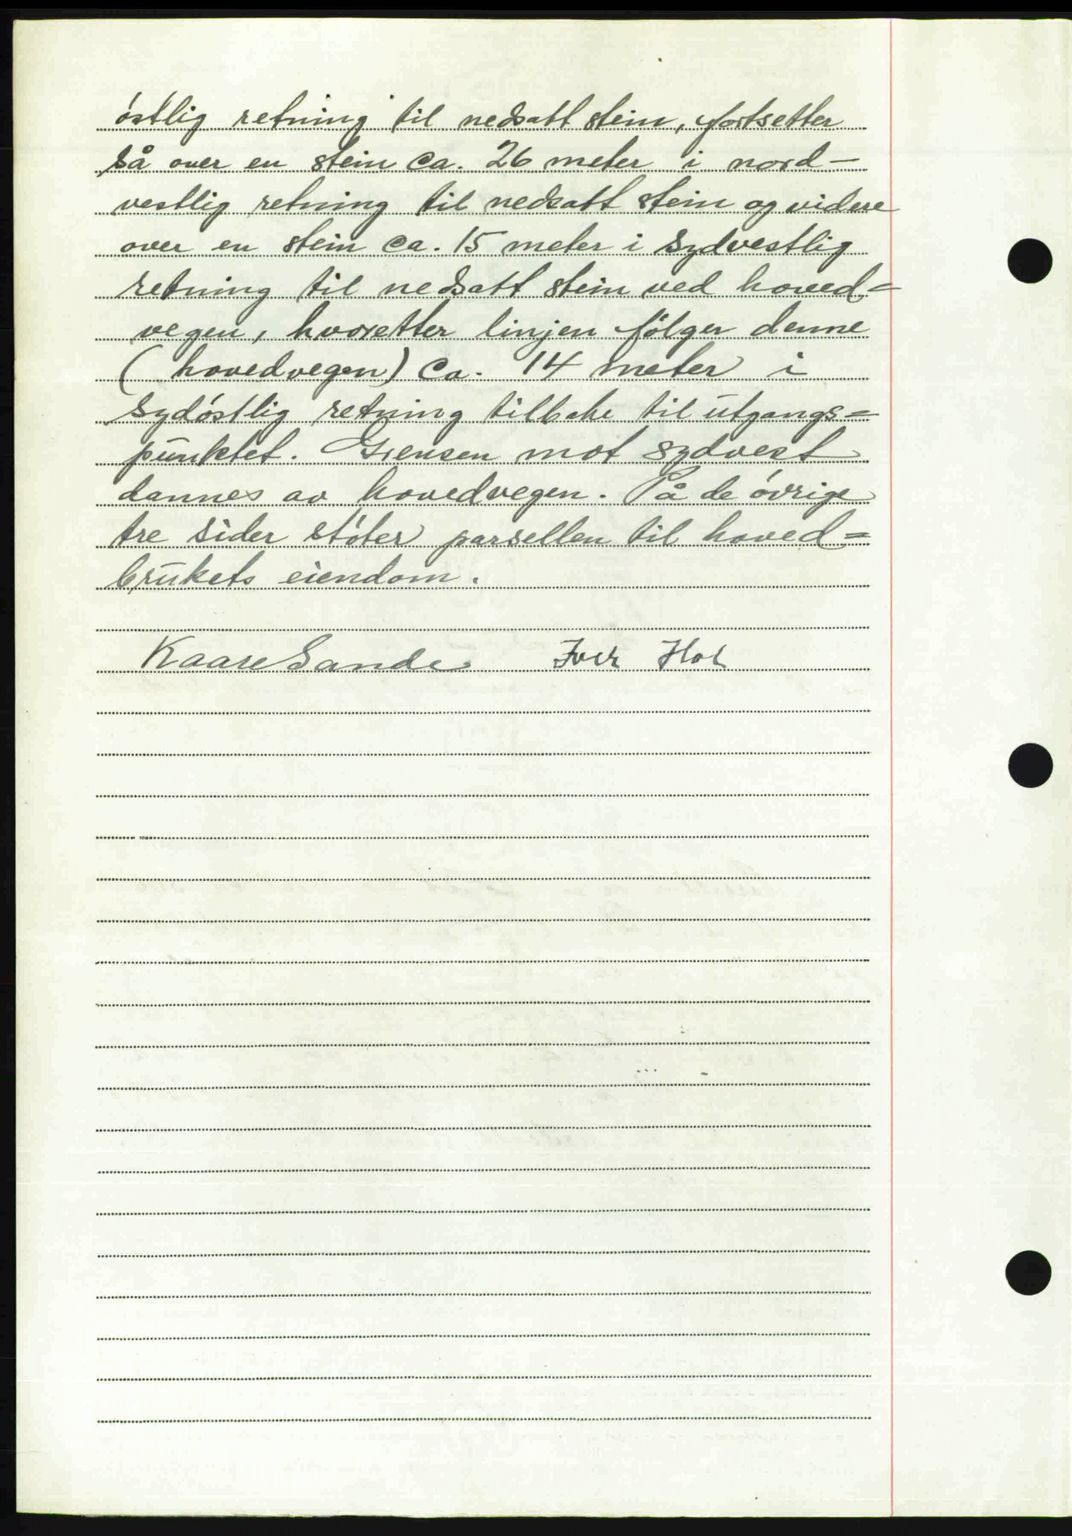 østlig retning til nedsatt stein, fortsetter
så over en stein ca. 26 meter i nord-
vestlig retning til nedsatt stein og videre
over en stein ca. 15 meter i sydvestlig
retning til nedsatt stein ved hoved=
vegen, hvoretter linjen følger denne
(hovedvegen) ca. 14 meter i
sydøstlig retning tilbake til utgangs=
punktet. Grensen mot sydvest
dannes av hovedvegen. På de øvrige
tre sider støter parsellen til hoved=
brukets eiendom.
Kaare Sande Iver Hol